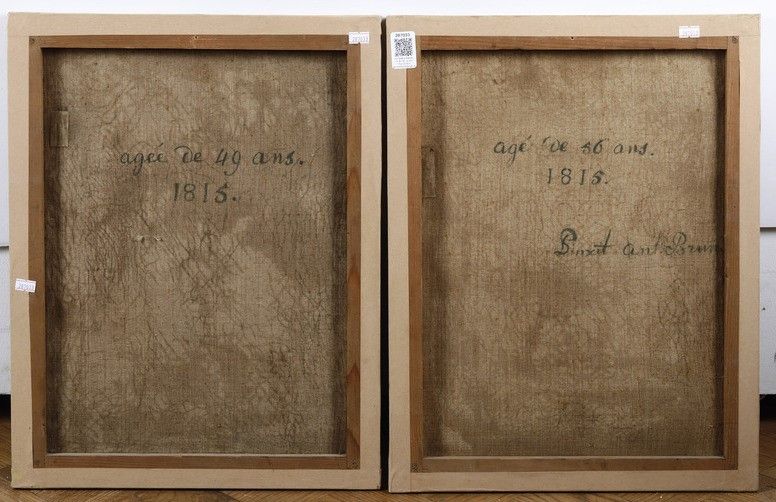 agée de 49 ans.
1815.
agé de 56 ans.
1815.
Pinxit ant Brun
287033